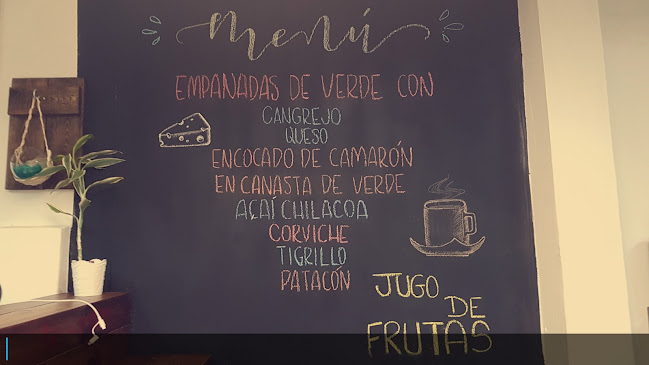 menú
EMPANADAS DE VERDE CON
CANGREJO
QUESO
ENCOCADO DE CAMARÓN
EN CANASTA DE VERDE
AÇAÍ CHILACOA
CORVICHE
TIGRILLO
PATACÓN
JUGO
DE
FRUTAS